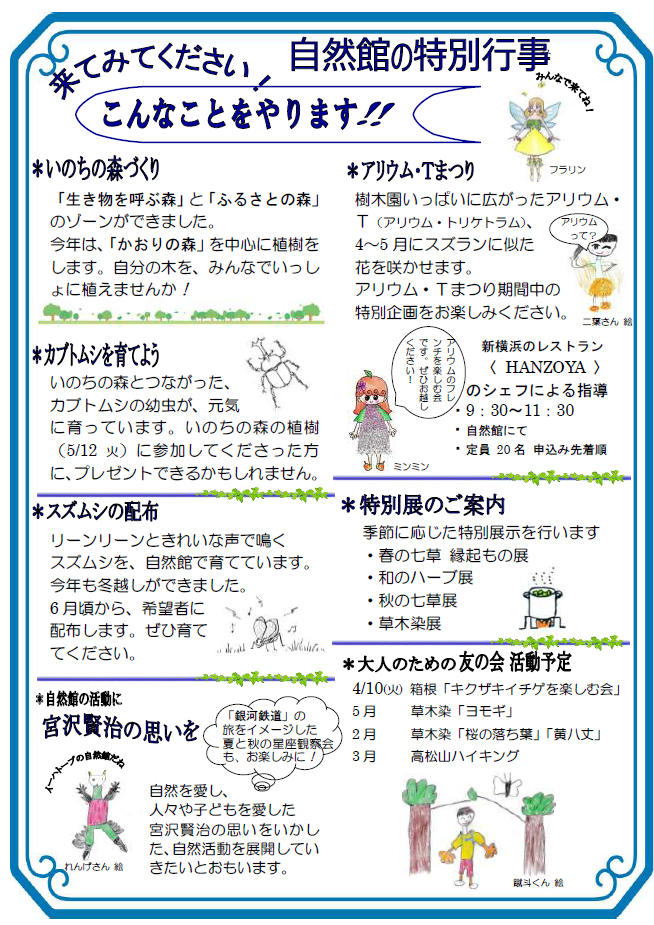 来てみてください！
自然館の特別行事
こんなことをやります!!
みんなで来てね！
フラリン
＊いのちの森づくり
「生き物を呼ぶ森」と「ふるさとの森」
のゾーンができました。
今年は、「かおりの森」を中心に植樹を
します。自分の木を、みんなでいっし
ょに植えませんか！
＊カブトムシを育てよう
いのちの森とつながった、
カブトムシの幼虫が、元気
に育っています。いのちの森の植樹
（5/12 火）に参加してくださった方
に、プレゼントできるかもしれません。
＊スズムシの配布
リーンリーンときれいな声で鳴く
スズムシを、自然館で育てています。
今年も冬越しができました。
6月頃から、希望者に
配布します。ぜひ育て
てください。
＊自然館の活動に
宮沢賢治の思いを
「銀河鉄道」の
旅をイメージした
夏と秋の星座観察会
も、お楽しみに！
イーハトーブの自然館だね
れんげさん 絵
自然を愛し、
人々や子どもを愛した
宮沢賢治の思いをいかし
た、自然活動を展開してい
きたいとおもいます。
＊アリウム・Tまつり
樹木園いっぱいに広がったアリウム・
T（アリウム・トリケトラム）、
4～5月にスズランに似た
花を咲かせます。
アリウム・Tまつり期間中の
特別企画をお楽しみください。
アリウム
って？
二葉さん 絵
アリウムのフレ
ンチを楽しむ会
です。ぜひお越し
ください！
ミンミン
新横浜のレストラン
〈 HANZOYA 〉
のシェフによる指導
・9：30～11：30
・自然館にて
・定員 20名 申込み先着順
＊特別展のご案内
季節に応じた特別展示を行います
・春の七草 縁起もの展
・和のハーブ展
・秋の七草展
・草木染展
＊大人のための友の会 活動予定
4/10(火) 箱根「キクザキイチゲを楽しむ会」
5月 草木染「ヨモギ」
2月 草木染「桜の落ち葉」「黄八丈」
3月 高松山ハイキング
蹴斗くん 絵